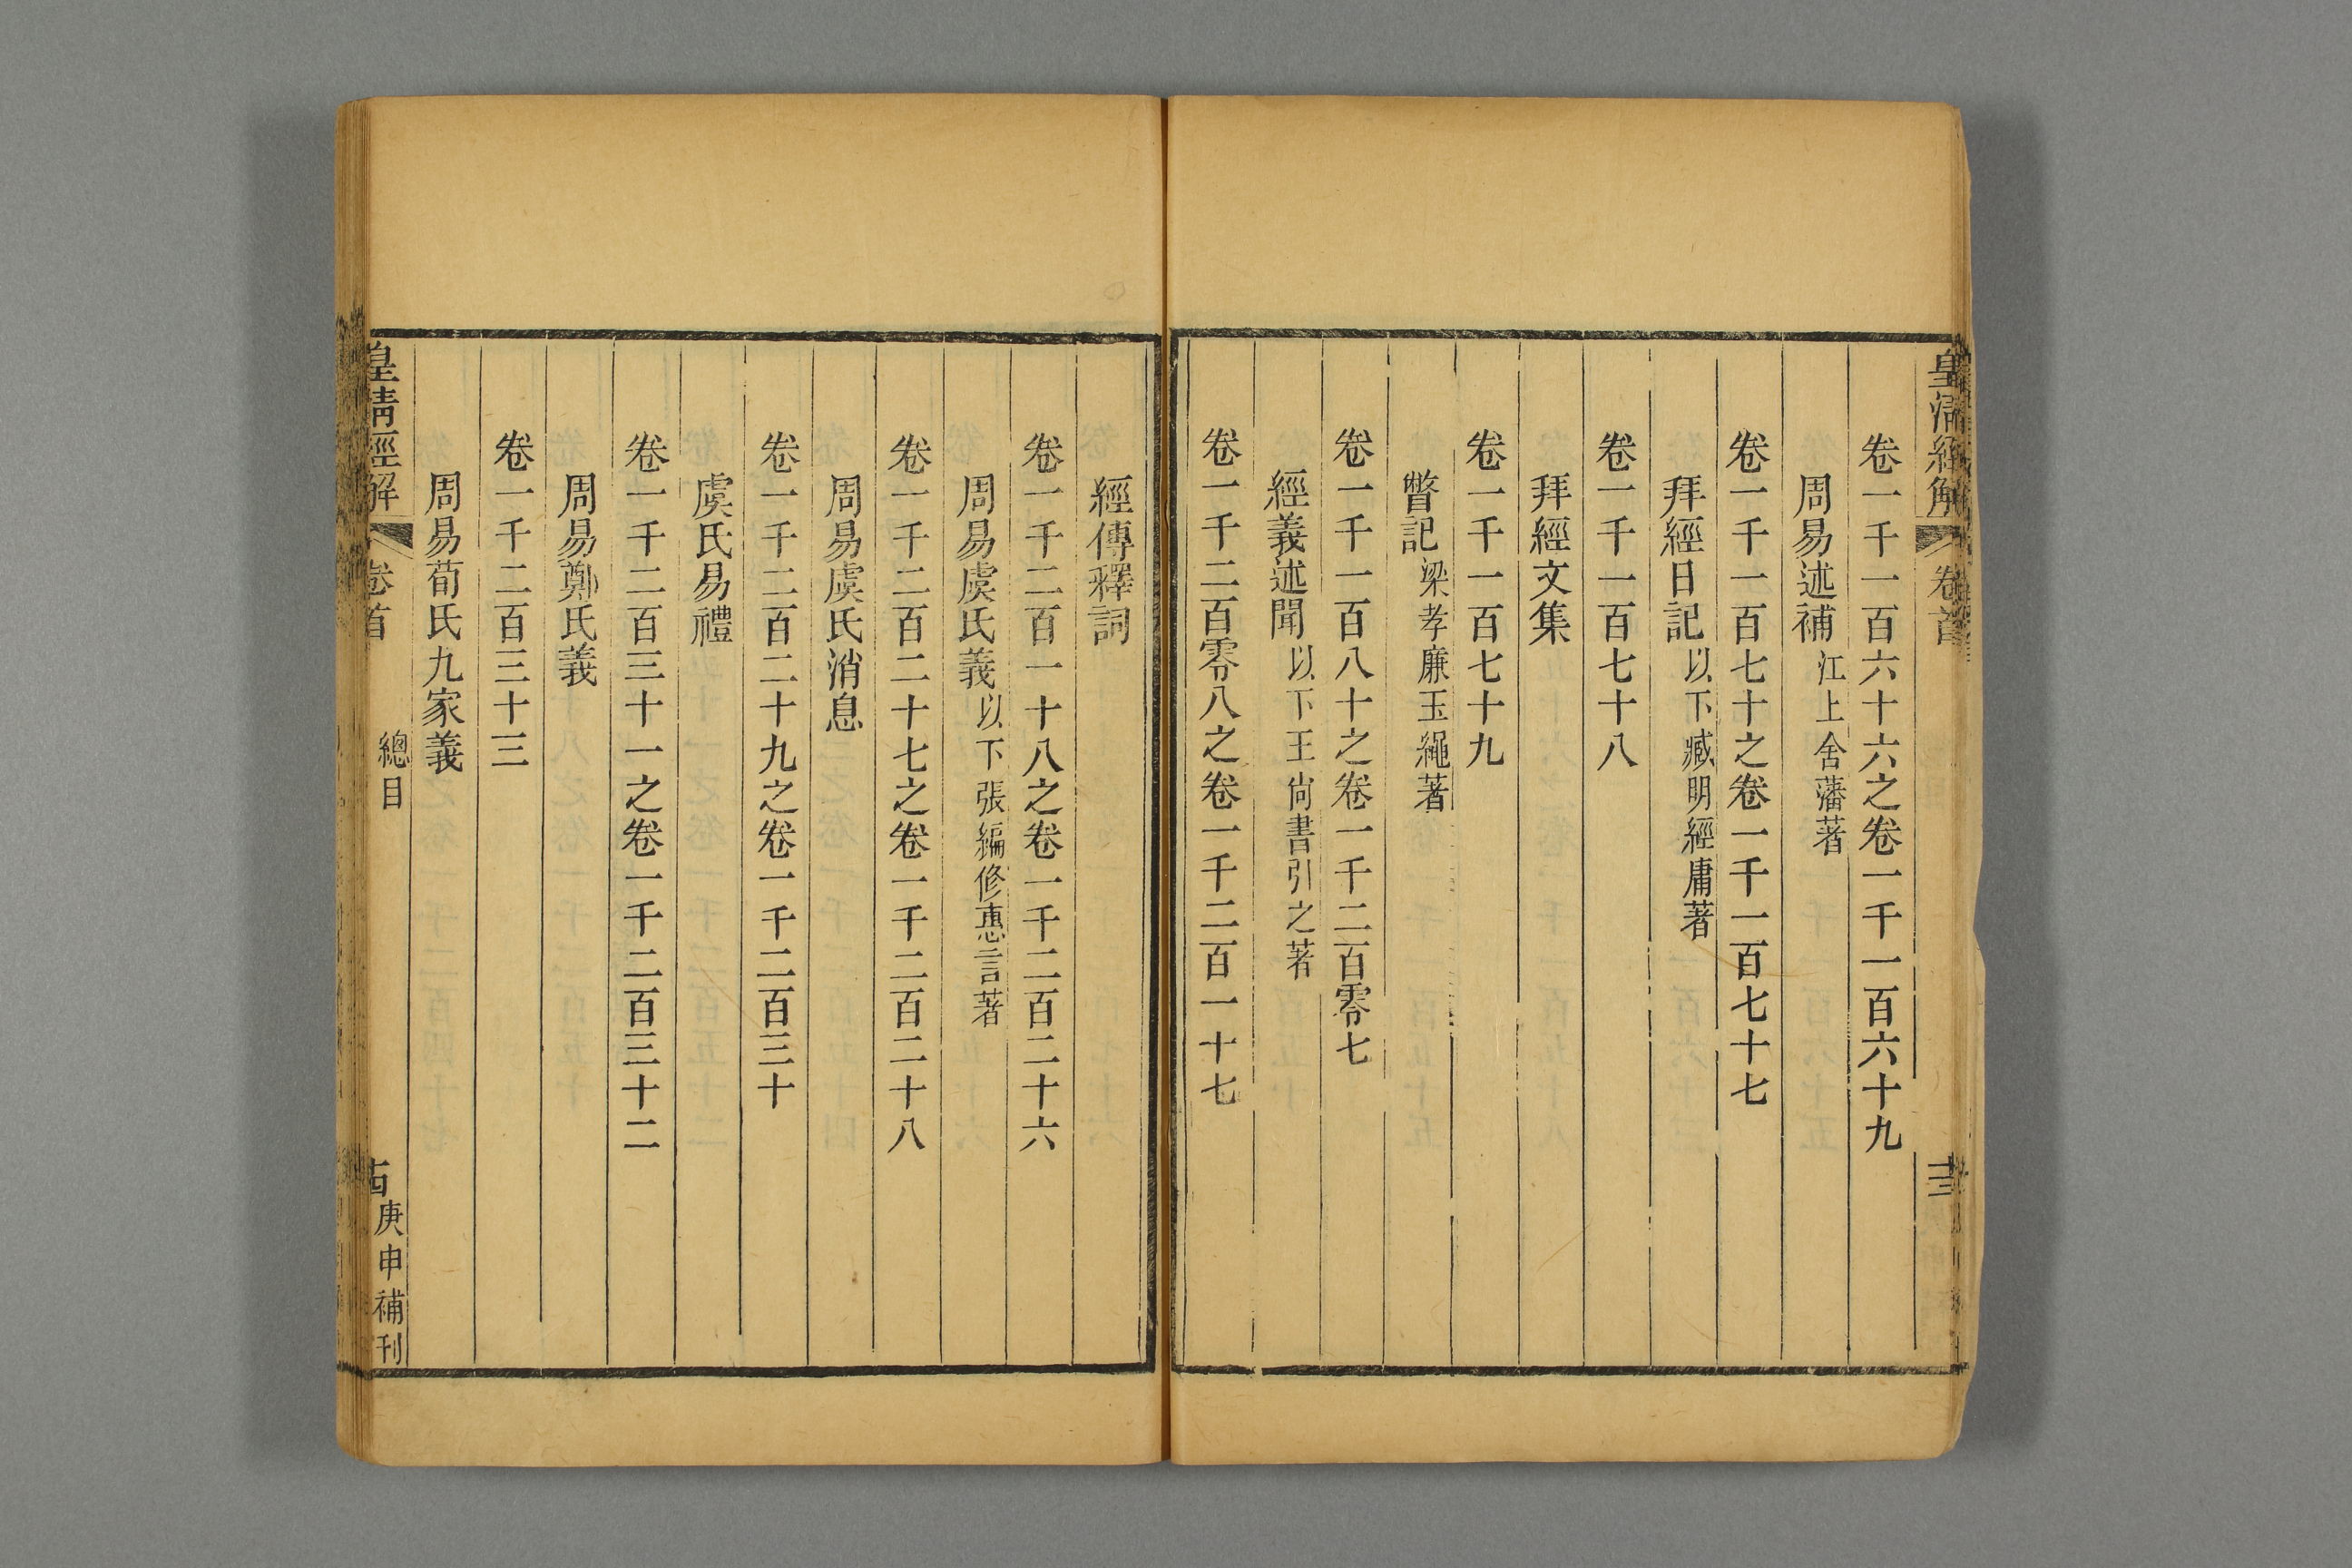 皇清經解 卷首
卷一千一百六十六之卷一千一百六十九
周易述補 江上舍藩著
卷一千一百七十之卷一千一百七十七
拜經日記 以下臧明經庸著
卷一千一百七十八
拜經文集
卷一千一百七十九
瞥記 梁孝廉玉繩著
卷一千一百八十之卷一千二百零七
經義述聞 以下王尚書引之著
卷一千二百零八之卷一千二百一十七
經傳釋詞
卷一千二百一十八之卷一千二百二十六
周易虞氏義 以下張編修惠言著
卷一千二百二十七之卷一千二百二十八
周易虞氏消息
卷一千二百二十九之卷一千二百三十
虞氏易禮
卷一千二百三十一之卷一千二百三十二
周易鄭氏義
卷一千二百三十三
周易荀氏九家義
皇清經解 卷首 總目 庚申補刊